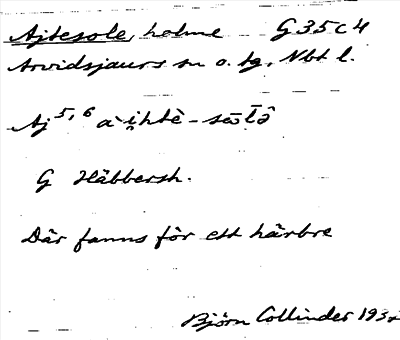 Ajtesole, holme G 35 c 4
Arvidsjaurs sn o. tg, Nbt l.
Aj 5, 6
G Häbbersh.
Där fanns för ett härbre
Björn Collinder 193